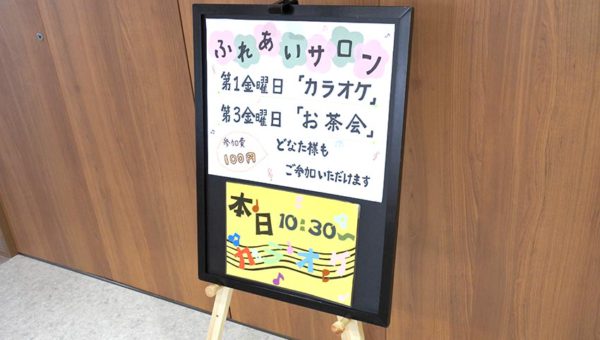 ふれあいサロン
第1金曜日「カラオケ」
第3金曜日「お茶会」
参加費
100円
どなた様も
ご参加いただけます
本日10:30〜
カラオケ